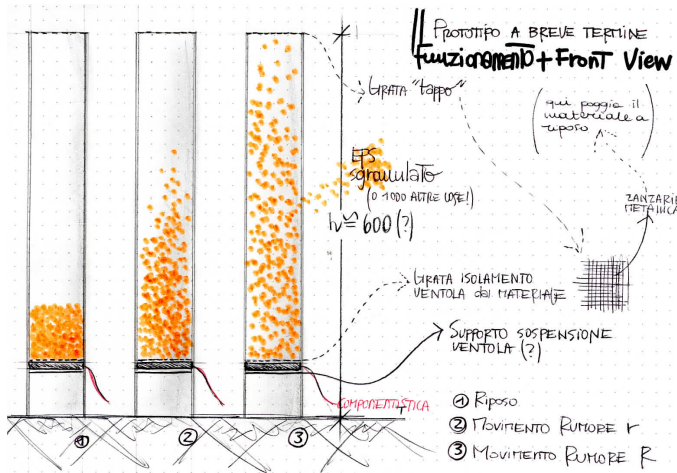 PROTOTIPO A BREVE TERMINE
funzionamento + Front View
GRATA "tappo"
(qui poggia il
materiale a
riposo)
EPS
sgranulato
(O 1000 ALTRE COSE!)
h ≃ 600 (?)
ZANZARIE
METALLICA
GRATA ISOLAMENTO
VENTOLA dal MATERIALE
SUPPORTO SOSPENSIONE
VENTOLA (?)
COMPONENTISTICA
① ② ③
① Riposo
② MOVIMENTO RUMORE r
③ MOVIMENTO RUMORE R